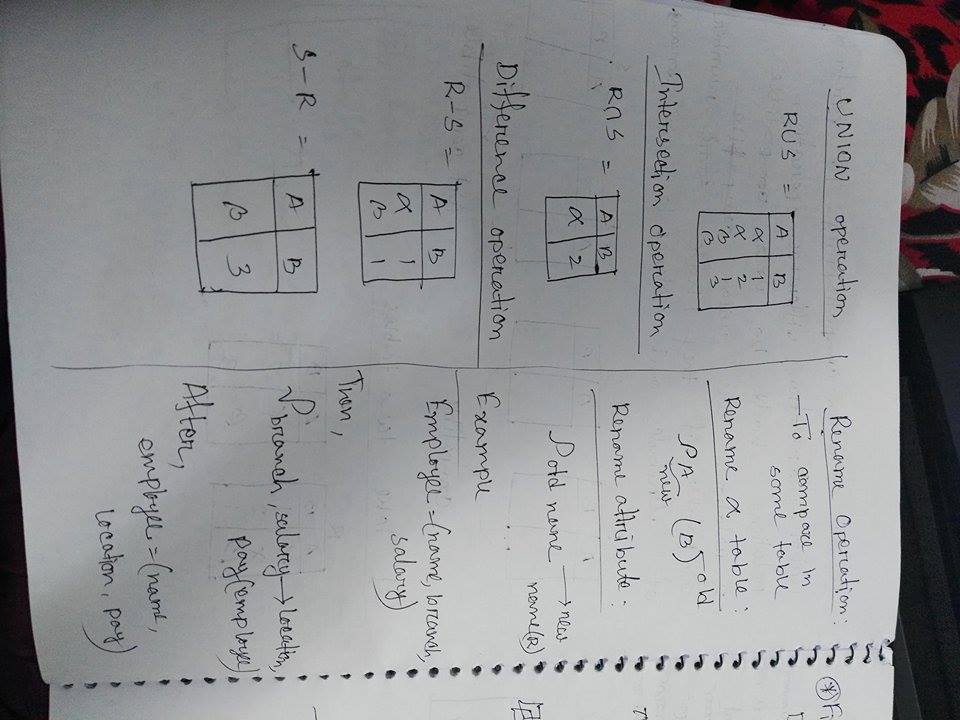 UNION operation
RUS =
A B
α 1
α 2
β 1
β 3
Intersection operation
R∩S =
A B
α 2
Difference operation
R-S =
A B
α 1
β 1
S-R =
A B
β 3
Rename operation:
- To compare in
some table
Rename a table:
ρA (B) old
new
Rename attribute:
ρold name → new
name(R)
Example
Employee = (name, branch,
salary)
Then,
ρbranch, salary → location,
pay(employee)
After,
employee = (name,
location, pay)